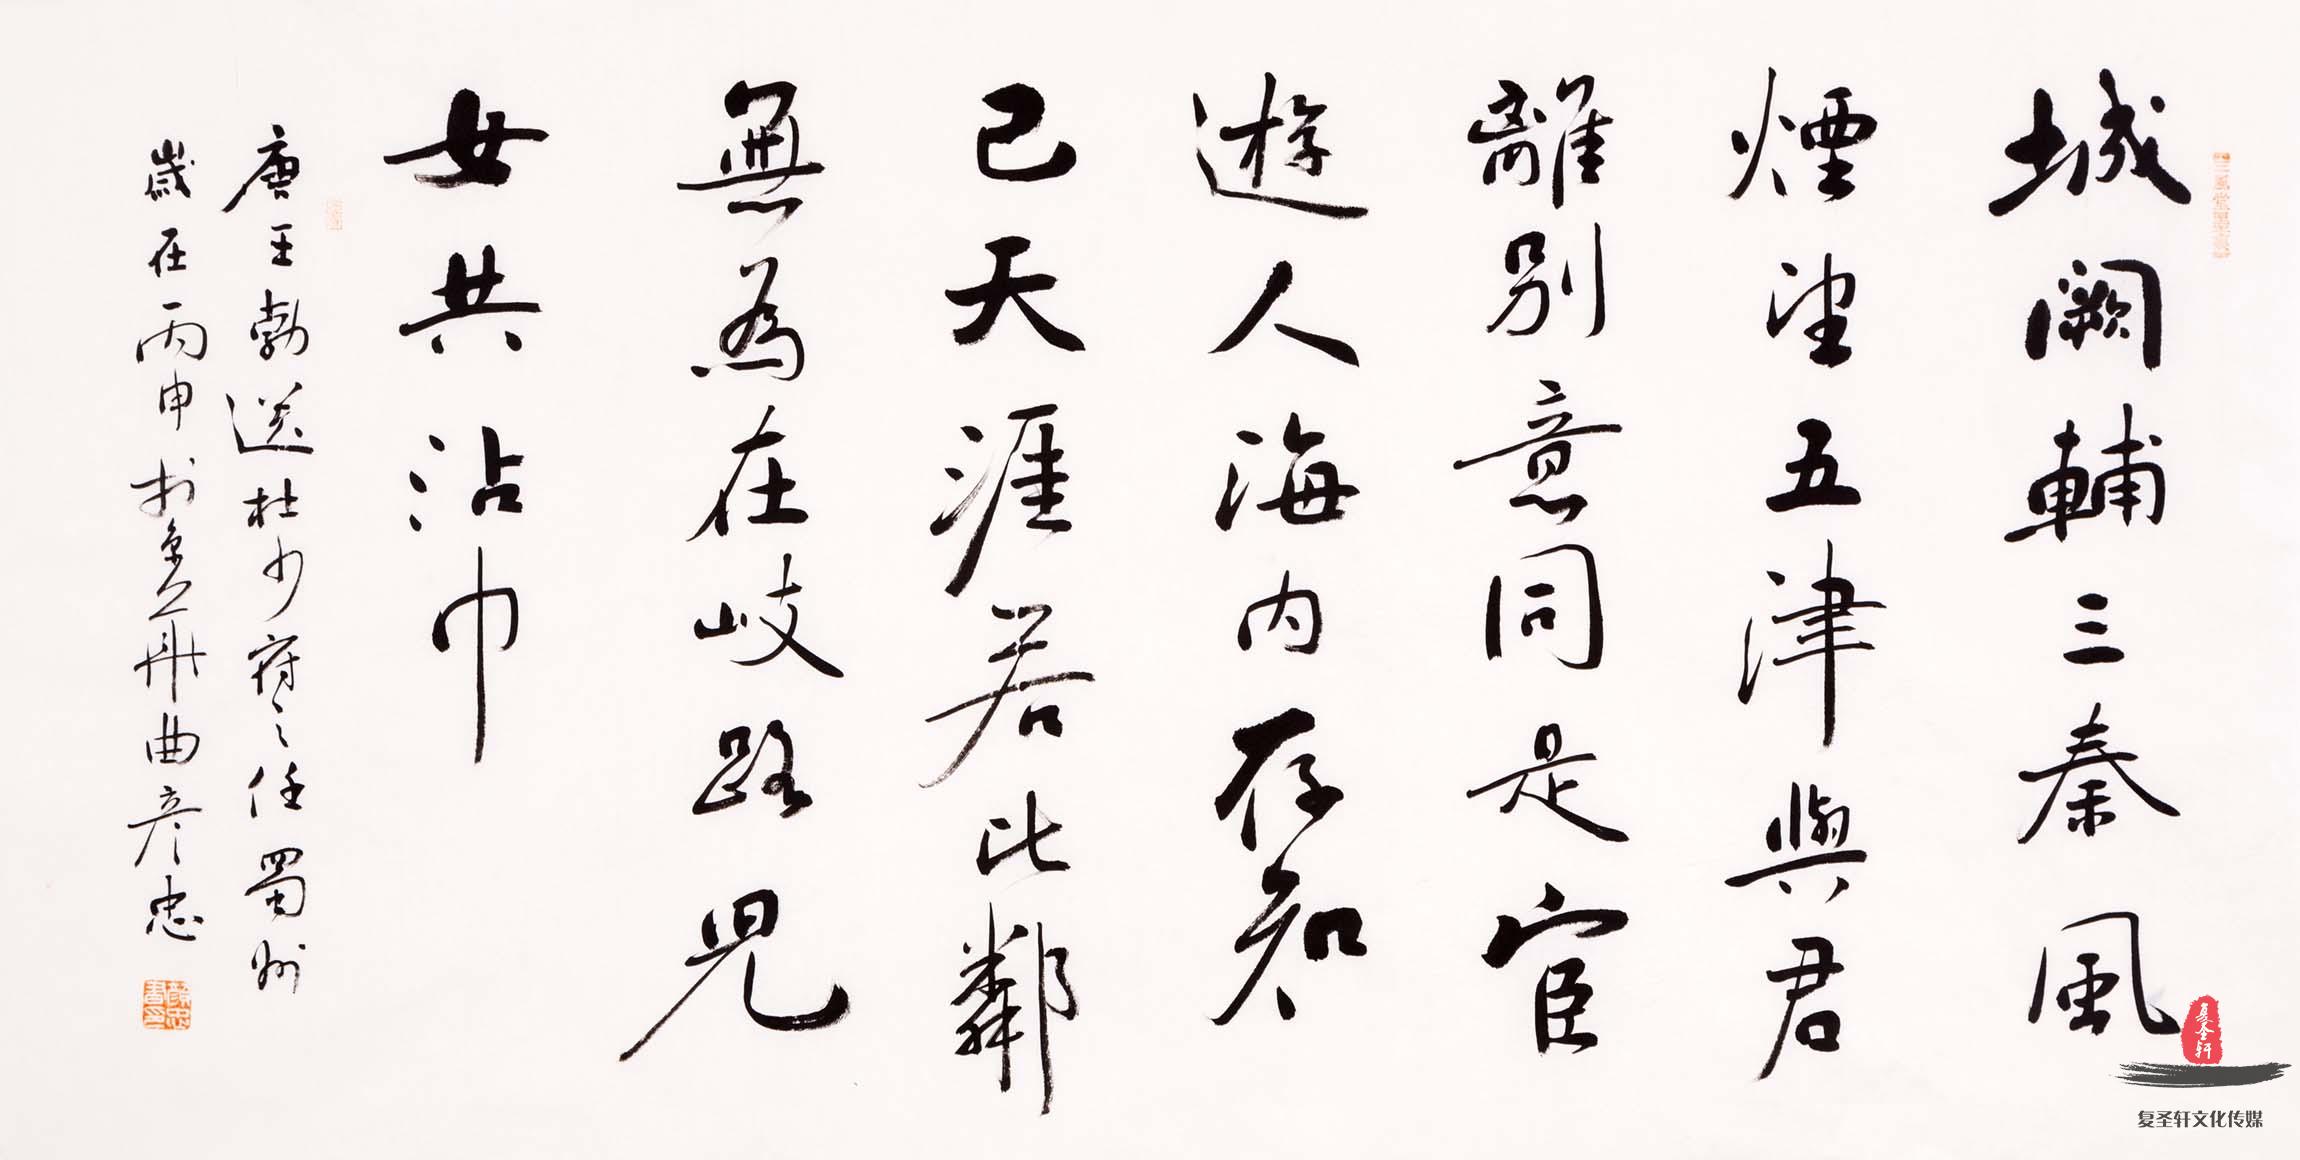 城闕輔三秦風
煙望五津與君
離別意同是宦
遊人海内存知
已天涯若比鄰
無為在岐路兒
女共沾巾
唐王勃送杜少府之任蜀州
歲在丙申於曲彥忠
复圣轩
复圣轩文化传媒